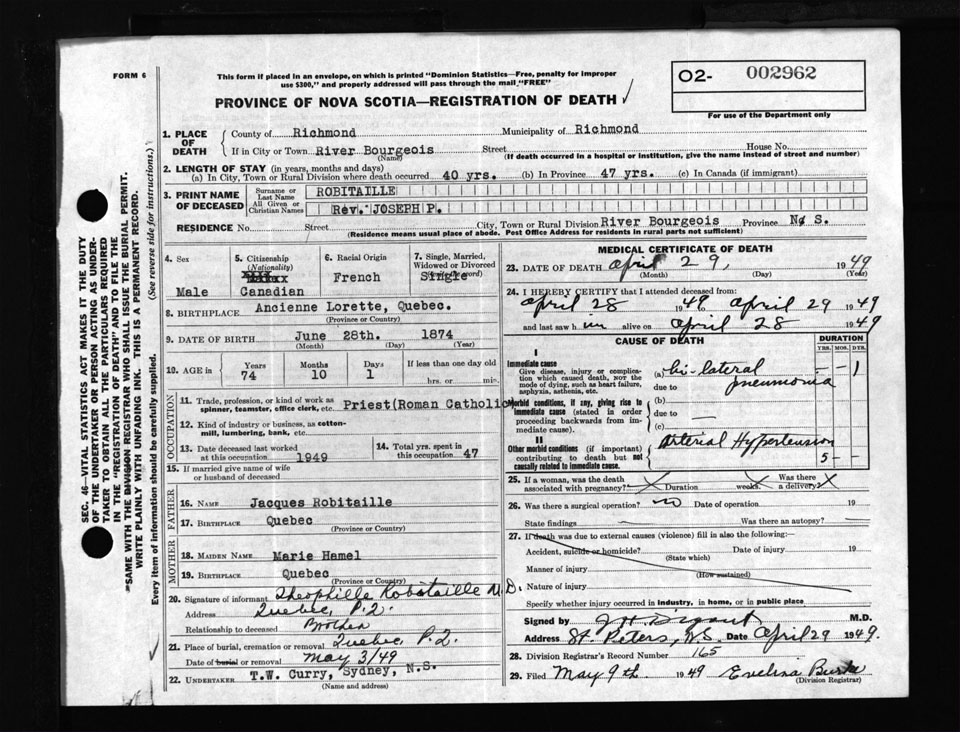 FORM 6
This form if placed in an envelope, on which is printed "Dominion Statistics—Free, penalty for improper
use $300," and properly addressed will pass through the mail "FREE"
PROVINCE OF NOVA SCOTIA—REGISTRATION OF DEATH
O2- 002962
For use of the Department only
1. PLACE OF DEATH
County of Richmond Municipality of Richmond
If in City or Town River Bourgeois Street House No.
(Name) (If death occurred in a hospital or institution, give the name instead of street and number)
2. LENGTH OF STAY (in years, months and days)
(a) In City, Town or Rural Division where death occurred 40 yrs. (b) In Province 47 yrs. (c) In Canada (if immigrant)
3. PRINT NAME OF DECEASED
Surname or Last Name ROBITAILLE
All Given or Christian Names Rev. JOSEPH P.
RESIDENCE No. Street City, Town or Rural Division River Bourgeois Province N. S.
(Residence means usual place of abode. Post Office Address for residents in rural parts not sufficient)
4. Sex
Male
5. Citizenship
(Nationality)
Canadian
6. Racial Origin
French
7. Single, Married, Widowed or Divorced
Single
8. BIRTHPLACE Ancienne Lorette, Quebec.
(Province or Country)
9. DATE OF BIRTH June 28th. 1874
(Month) (Day) (Year)
10. AGE in
Years Months Days If less than one day old
74 10 1 hrs. or min.
OCCUPATION
11. Trade, profession, or kind of work as
spinner, teamster, office clerk, etc. Priest(Roman Catholic
12. Kind of industry or business, as cotton-
mill, lumbering, bank, etc.
13. Date deceased last worked
at this occupation 1949
14. Total yrs. spent in
this occupation 47
15. If married give name of wife
or husband of deceased
FATHER
16. NAME Jacques Robitaille
17. BIRTHPLACE Quebec
(Province or Country)
MOTHER
18. MAIDEN NAME Marie Hamel
19. BIRTHPLACE Quebec
(Province or Country)
20. Signature of informant Theophille Robitaille M.D.
Address Quebec, P.Q.
Relationship to deceased Brother
21. Place of burial, cremation or removal Quebec, P.Q.
Date of burial or removal May 3/49
22. UNDERTAKER T.W. Curry, Sydney, N.S.
(Name and address)
MEDICAL CERTIFICATE OF DEATH
23. DATE OF DEATH April 29, 1949
(Month) (Day) (Year)
24. I HEREBY CERTIFY that I attended deceased from:
April 28 1949 to April 29 1949
and last saw h im alive on April 28 1949
CAUSE OF DEATH
DURATION
YRS. MOS. DYS.
I
Immediate cause
Give disease, injury or complica-
tion which caused death, NOT the
mode of dying, such as heart failure,
asphyxia, asthenia, etc.
(a) bi-lateral — — 1
due to pneumonia
Morbid conditions, if any, giving rise to
immediate cause (stated in order
proceeding backwards from im-
mediate cause).
(b)
due to —
(c)
II
Other morbid conditions (if important)
contributing to death but not
causally related to immediate cause.
Arterial Hypertension
5 -
25. If a woman, was the death
associated with pregnancy? X Duration weeks. Was there
a delivery? X
26. Was there a surgical operation? no Date of operation 19
State findings — Was there an autopsy? —
27. If death was due to external causes (violence) fill in also the following:
Accident, suicide or homicide? Date of injury 19
(State which)
Manner of injury
(How sustained)
Nature of injury
Specify whether injury occurred in industry, in home, or in public place
Signed by M.D.
Address St. Peters, N.S. Date April 29 1949.
28. Division Registrar's Record Number 165
29. Filed May 9th 1949 Evelina
(Division Registrar)
SEC. 46—VITAL STATISTICS ACT MAKES IT THE DUTY
OF THE UNDERTAKER OR PERSON ACTING AS UNDER-
TAKER TO OBTAIN ALL THE PARTICULARS REQUIRED
IN THE "REGISTRATION OF DEATH" AND TO FILE THE
SAME WITH THE DIVISION REGISTRAR WHO SHALL ISSUE THE BURIAL PERMIT.
WRITE PLAINLY WITH UNFADING INK. THIS IS A PERMANENT RECORD.
Every item of information should be carefully supplied. (See reverse side for instructions.)